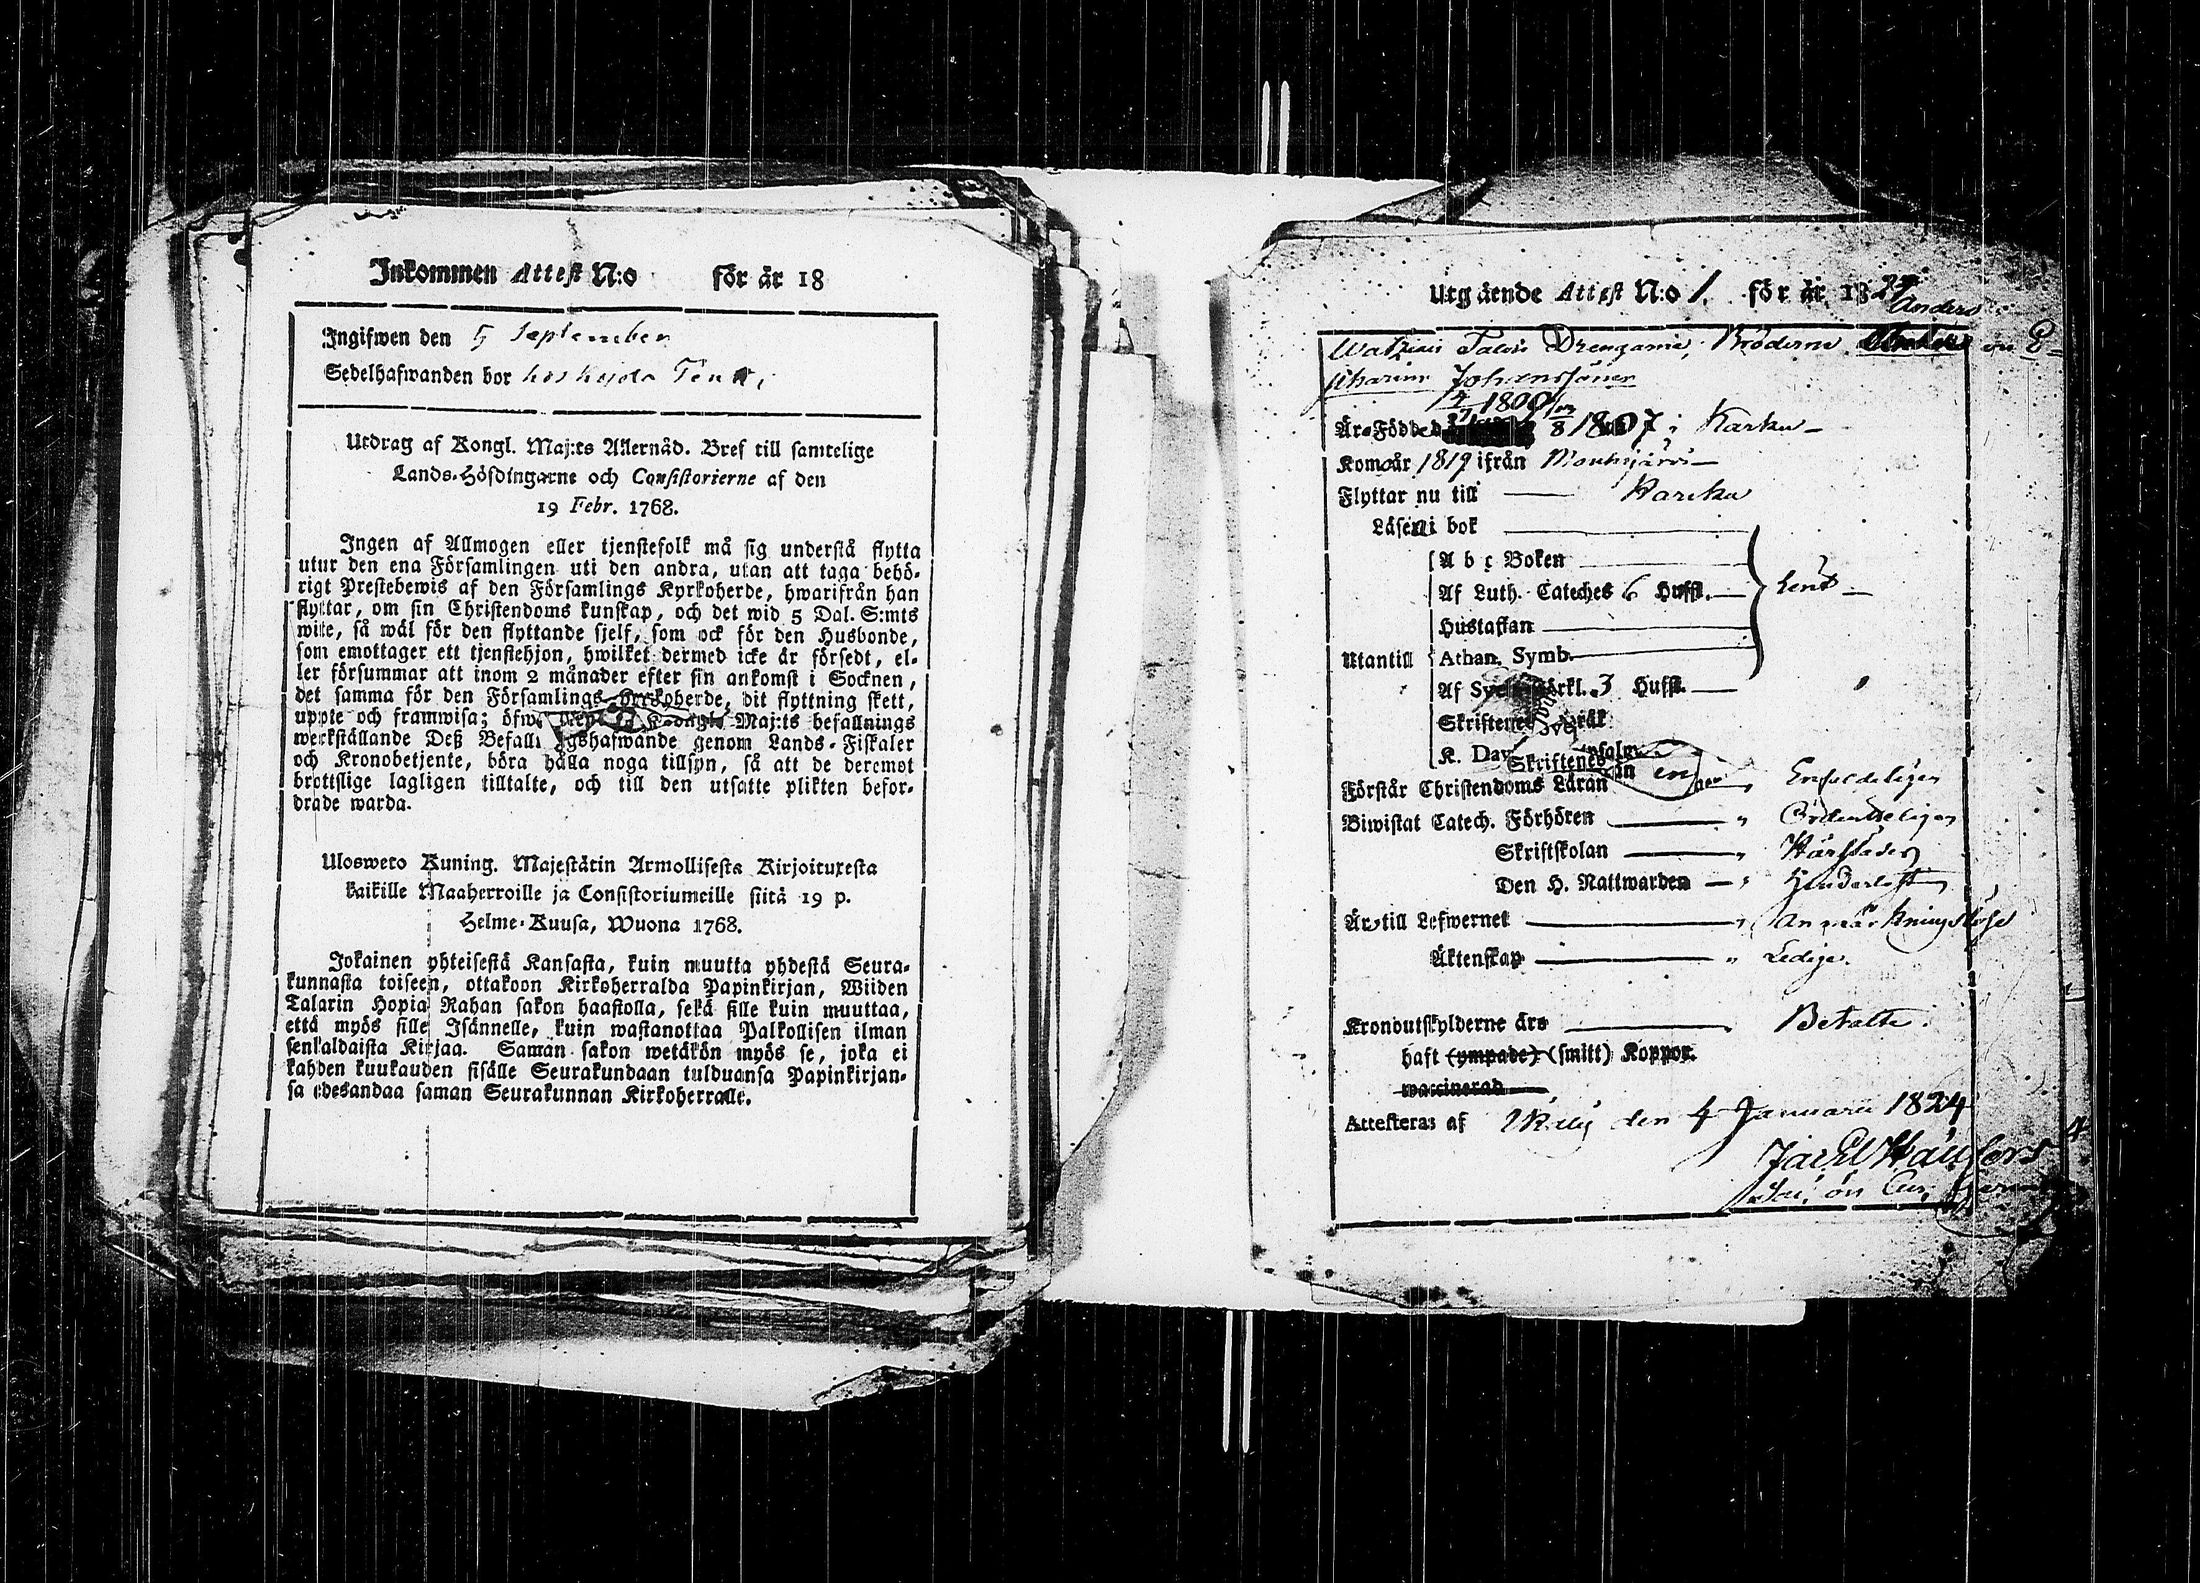 Inkommen Attest N:o för år 18
Ingifwen den 5 September
Sedelhafwanden bor hos
Utdrag af Kongl. Maj:ts Allernåd. Bref till samtelige
Lands-Höfdingarne och Consistorierne af den
19 Febr. 1768.
Ingen af Allmogen eller tjenstefolk må sig understå flytta
utur den ena Församlingen uti den andra, utan att taga behö-
rigt Prestebewis af den Församlings Kyrkoherde, hwarifrån han
flyttar, om sin Christendoms kunskap, och det wid 5 Dal. S:mts
wite, så wäl för den flyttande sjelf, som ock för den Husbonde,
som emottager ett tjenstehjon, hwilket dermed icke är försedt, el-
ler försummar att inom 2 månader efter sin ankomst i Socknen,
det samma för den Församlings Kyrkoherde, dit flyttning skett,
uppte och framwisa; Maj:ts befallnings
werkställande Deß Befallningshafwande genom Lands-Fiskaler
och Kronobetjente, böra hålla noga tillsyn, så att de deremot
brottslige lagligen tilltalte, och till den utsatte plikten befor-
drade warda.
Ulosweto Kuning. Majestätin Armollisesta Kirjoituxesta
kaikille Maaherroille ja Consistoriumeille siitä 19 p.
Helme-Kuusa, Wuona 1768.
Jokainen yhteisestä Kansasta, kuin muutta yhdestä Seura-
kunnasta toiseen, ottakoon Kirkoherralda Papinkirjan, Wiiden
Talarin Hopia Rahan sakon haastolla, sekä sille kuin muuttaa,
että myös sille Isännelle, kuin wastanottaa Palkollisen ilman
senkaldaista Kirjaa. Saman sakon wetäkön myös se, joka ei
kahden kuukauden sisälle Seurakundaan tulduansa Papinkirjan-
sa edesandaa saman Seurakunnan Kirkoherralle.
Utgående Attest N:o 1. för år 1824
Anders
Drengarne, Bröderne och
Johanssöner
1800
Äro Födde 1807 i Karku
Komo år 1819 ifrån Mouhijärvi
Flyttar nu till Karku
Läsa i bok
A b c Boken
Af Luth. Cateches 6 Hufst.
Hustaflan
Utantill Athan. Symb.
Af Förkl. 3 Hufst.
Skriftenes
K. Dav
Skriftenes
Förstår Christendoms Läran Enfaldeligen
Biwistat Catech. Förhören Ordenteligen
Skriftskolan
Den H. Nattwarden
Äro till Lefwernet Anmärkningslöse
Äktenskap Ledige.
Kronoutskylderne äro Betalte.
haft (ympade) (smitt) Koppor.
waccinerad
Attesteras af den 4 Januarii 1824